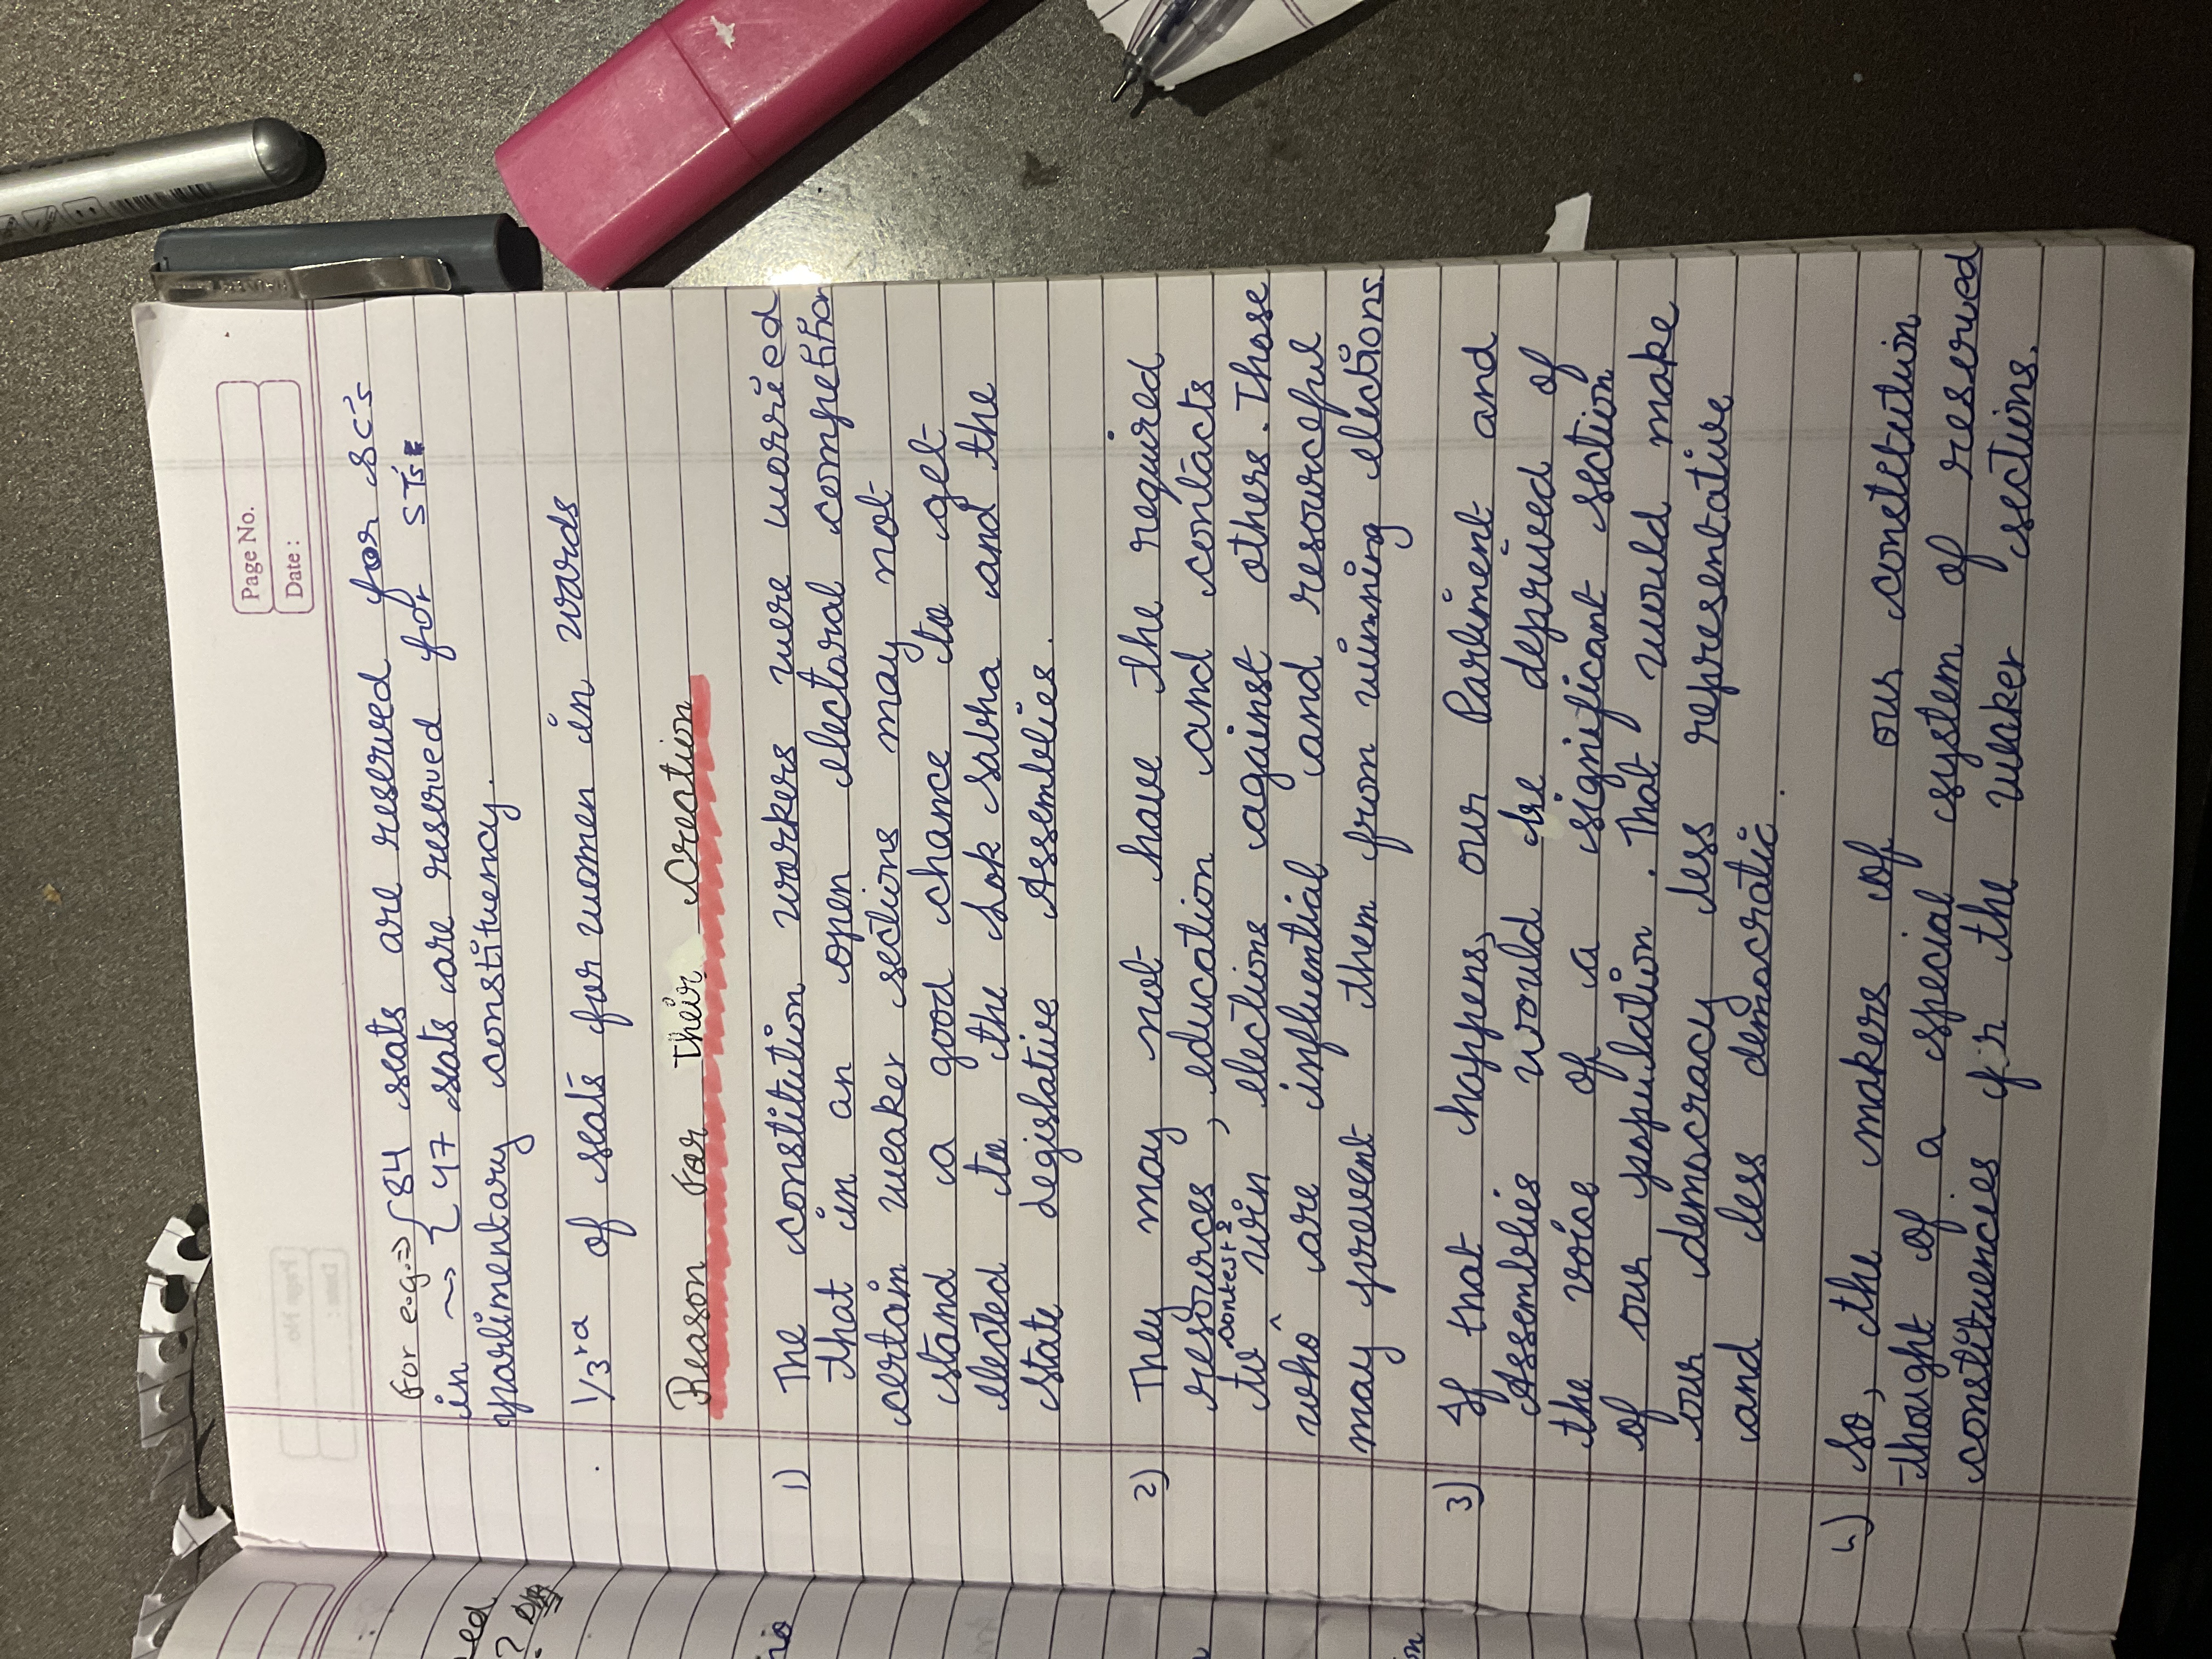 Page No.
Date :
For e.g. => { 84 seats are reserved for SC's
in ~> { 47 seats are reserved for STs
parlimentary constituency.
1/3rd of seats for women in wards
Reason For Their Creation
1) The constitution workers were worried
that in an open electoral competition
certain weaker sections may not
stand a good chance to get
elected to the Lok Sabha and the
state legislative Assemblies.
2) They may not have the required
resources, education and contacts
to contest & win elections against others. Those
who are influential and resourceful
may prevent them from winning elections.
3) If that happens, our Parliment and
Assemblies would be deprived of
the voice of a significant section
of our population. That would make
our democracy less representative
and less democratic.
4) So, the makers of our constitution
thought of a special system of reserved
constituencies fr the weaker sections.